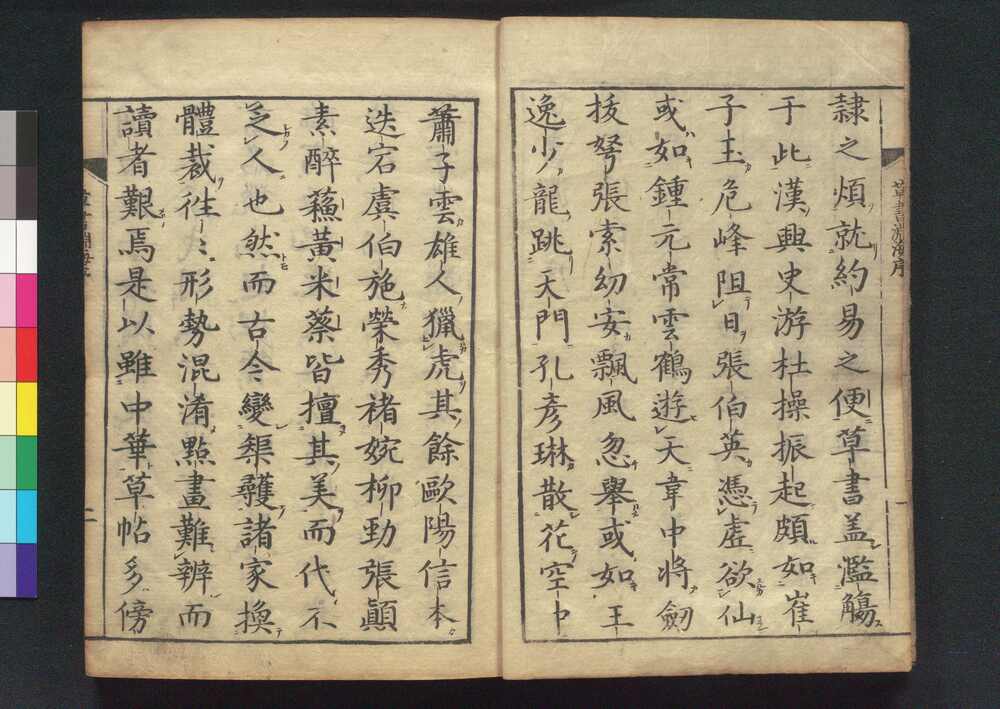 隷之煩就約易之便草書盖濫觴
于此漢興史游杜操振起頗如崔
子玉危峰阻日張伯英憑虗欲仙
或如鍾元常雲鶴遊天韋中將劒
拔弩張索幼安飄風忽舉或如王
逸少龍跳天門孔彦琳散花空中
蕭子雲雄人獵虎其餘歐陽信本
迭宕虞伯施榮秀禇婉柳勁張顛
素醉蘓黄米蔡皆擅其美而代不
乏人也然而古今變槩諸家換
體裁徃〻形勢混淆點畫難辨而
讀者艱焉是以雖中華草帖多傍
草書淵海序
一
二